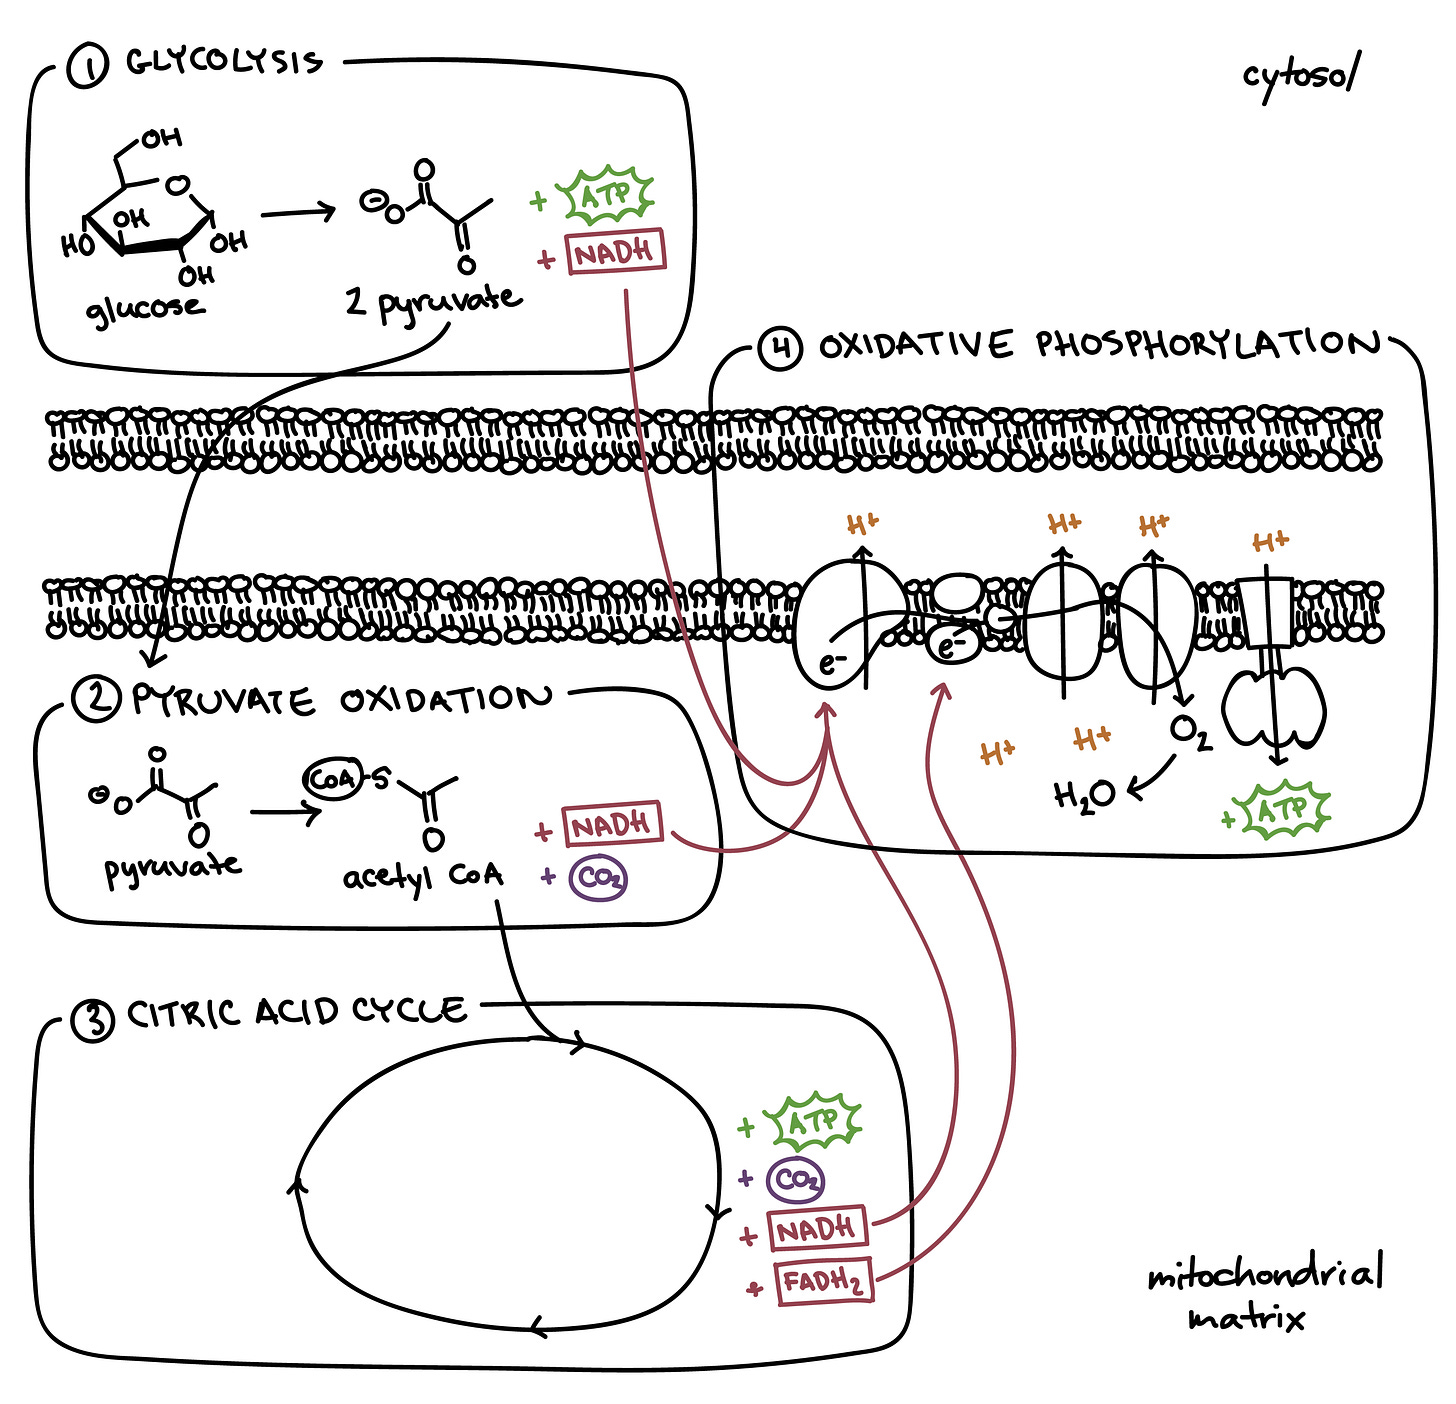 ① GLYCOLYSIS
cytosol
OH
O
OH
HO
OH
OH
glucose
O
⊖
O
O
2 pyruvate
+ ATP
+ NADH
④ OXIDATIVE PHOSPHORYLATION
H+
H+
H+
H+
e-
e-
H+
H+
O2
H2O
+ ATP
② PYRUVATE OXIDATION
O
⊖
O
O
pyruvate
CoA-S
O
acetyl CoA
+ NADH
+ CO2
③ CITRIC ACID CYCLE
+ ATP
+ CO2
+ NADH
+ FADH2
mitochondrial
matrix